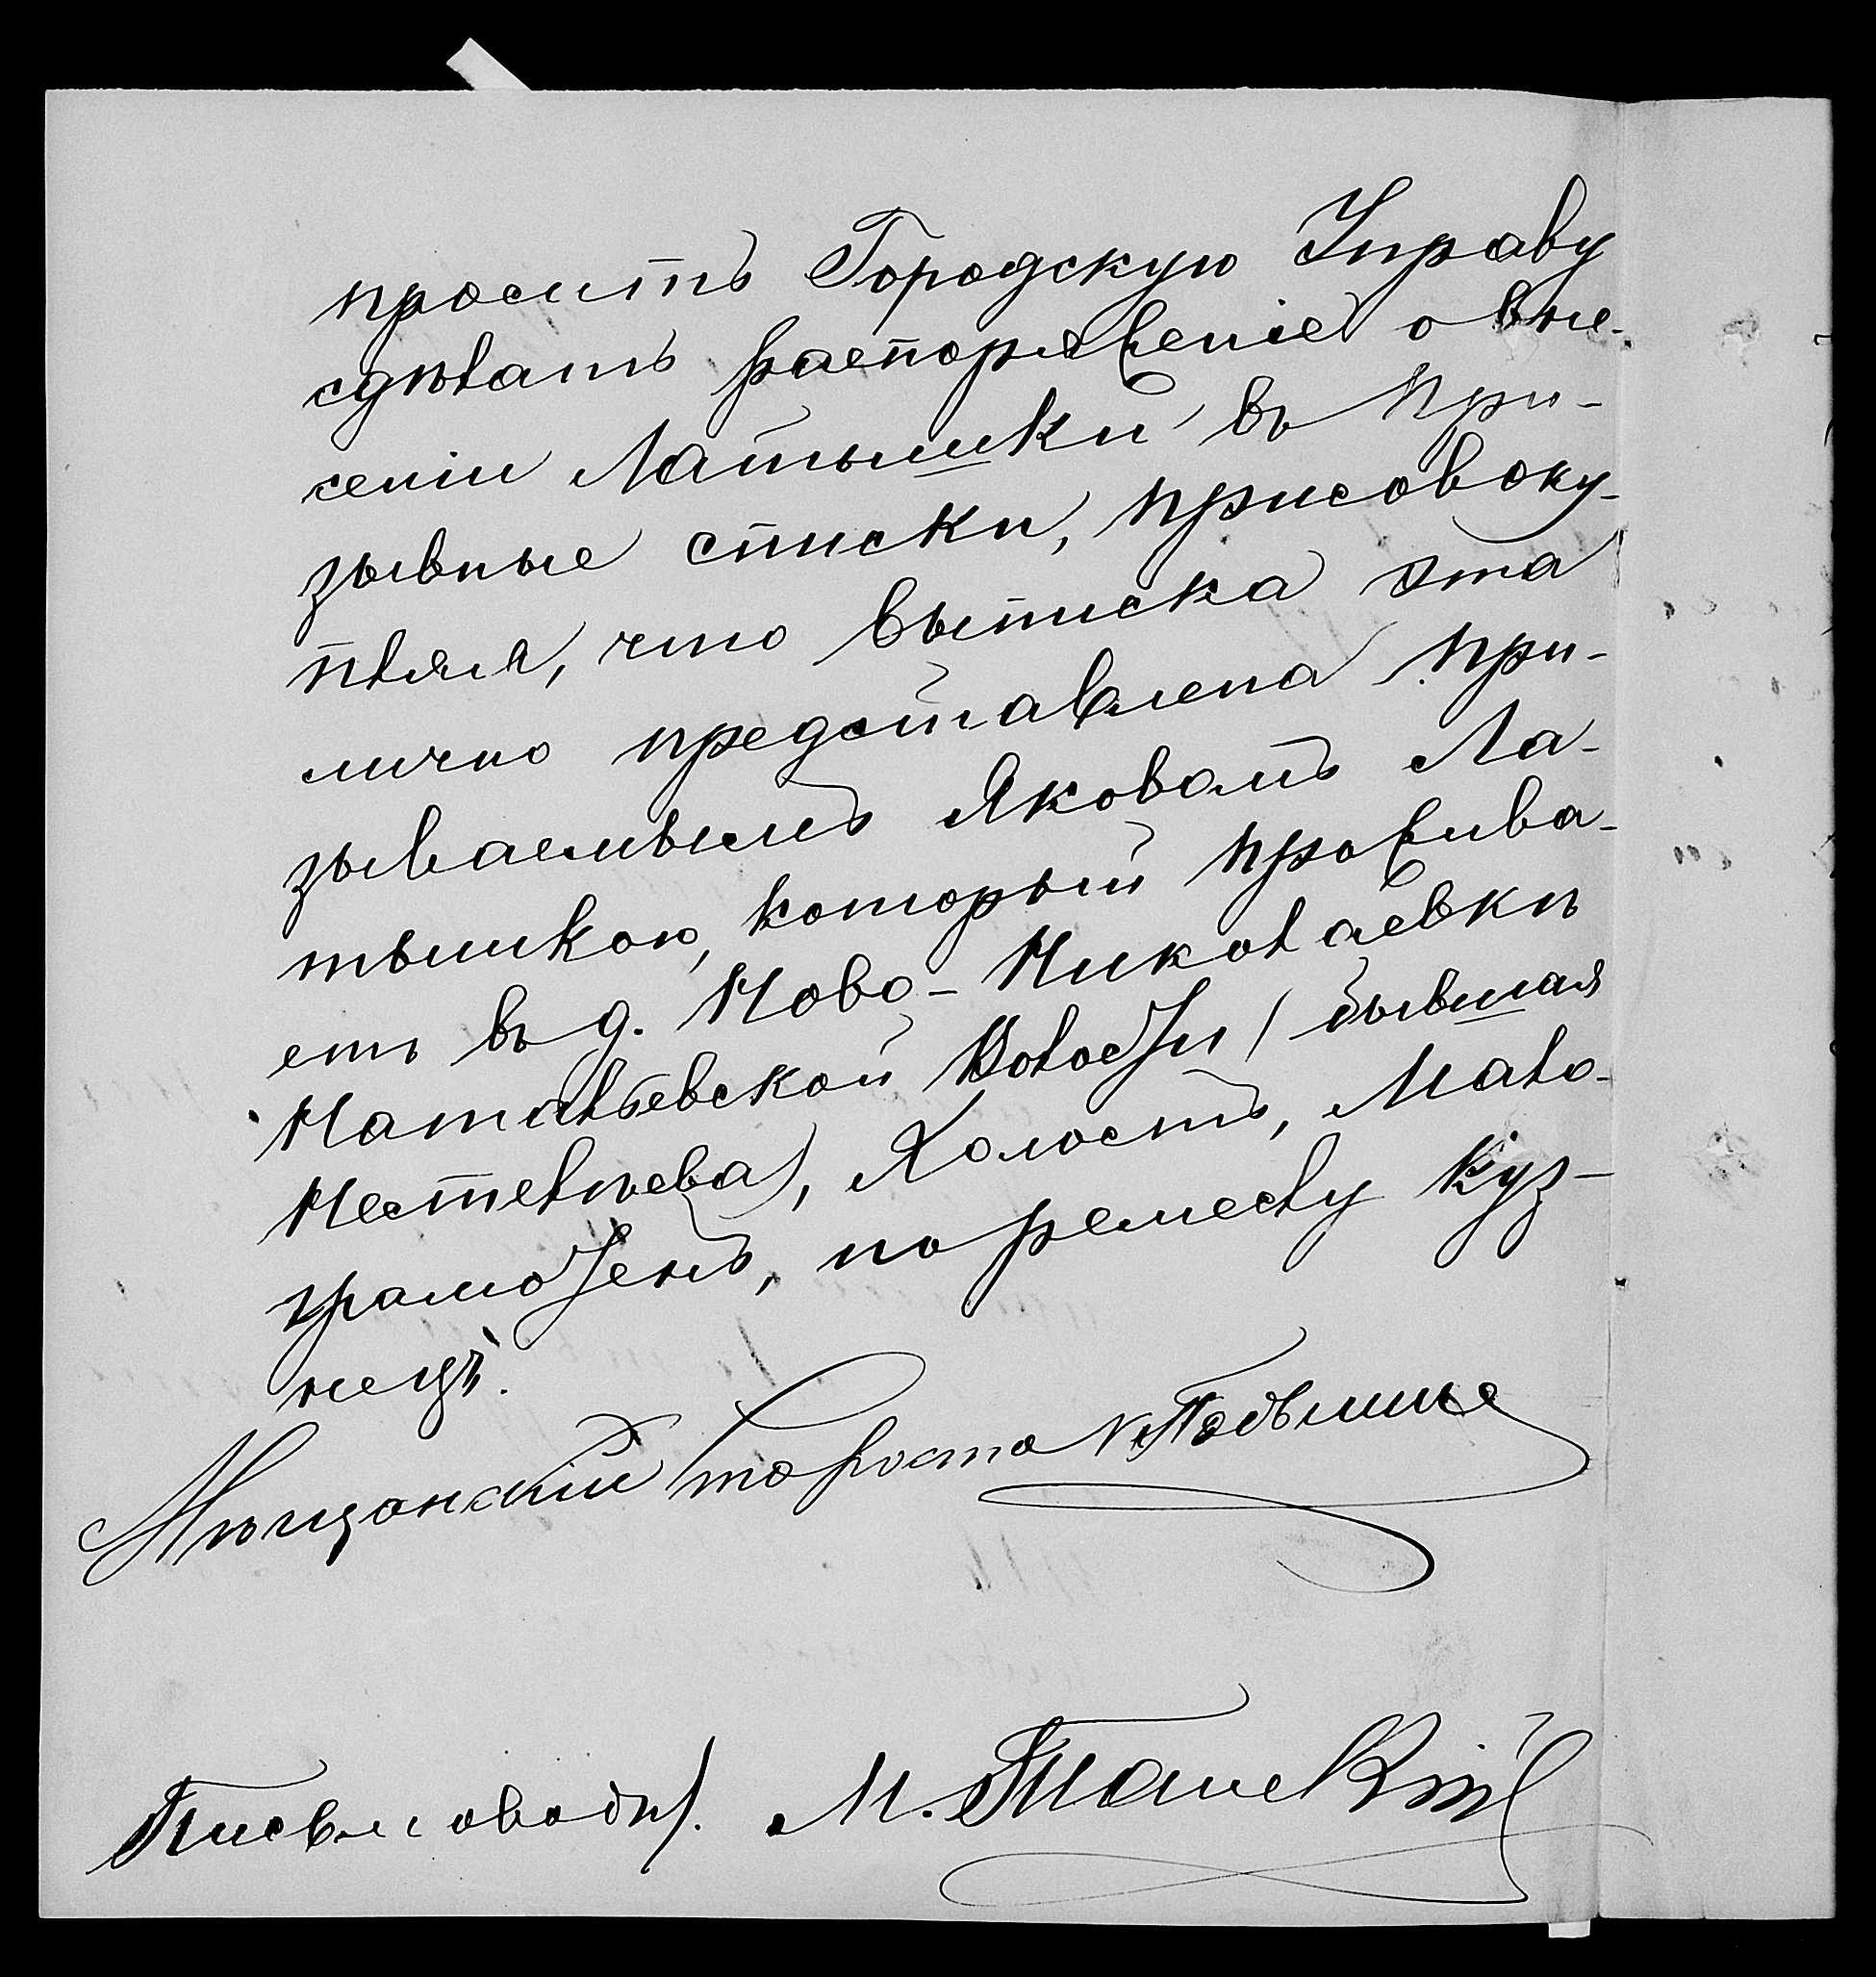 проситъ Городскую Управу
сдѣлать распоряженіе о вне-
сеніи Латышки въ при-
зывные списки, присовоку-
пляя, что выписка эта
лично представлена при-
зываемымъ Яковомъ Ла-
тышкою, который прожива-
етъ въ д. Ново-Николаевкѣ
Натальевской Волости (бывшая
Нестелѣева), Холостъ, Мало-
грамотенъ, по ремеслу куз-
нецъ.
Мѣщанскій Староста
Письмоводит. М.